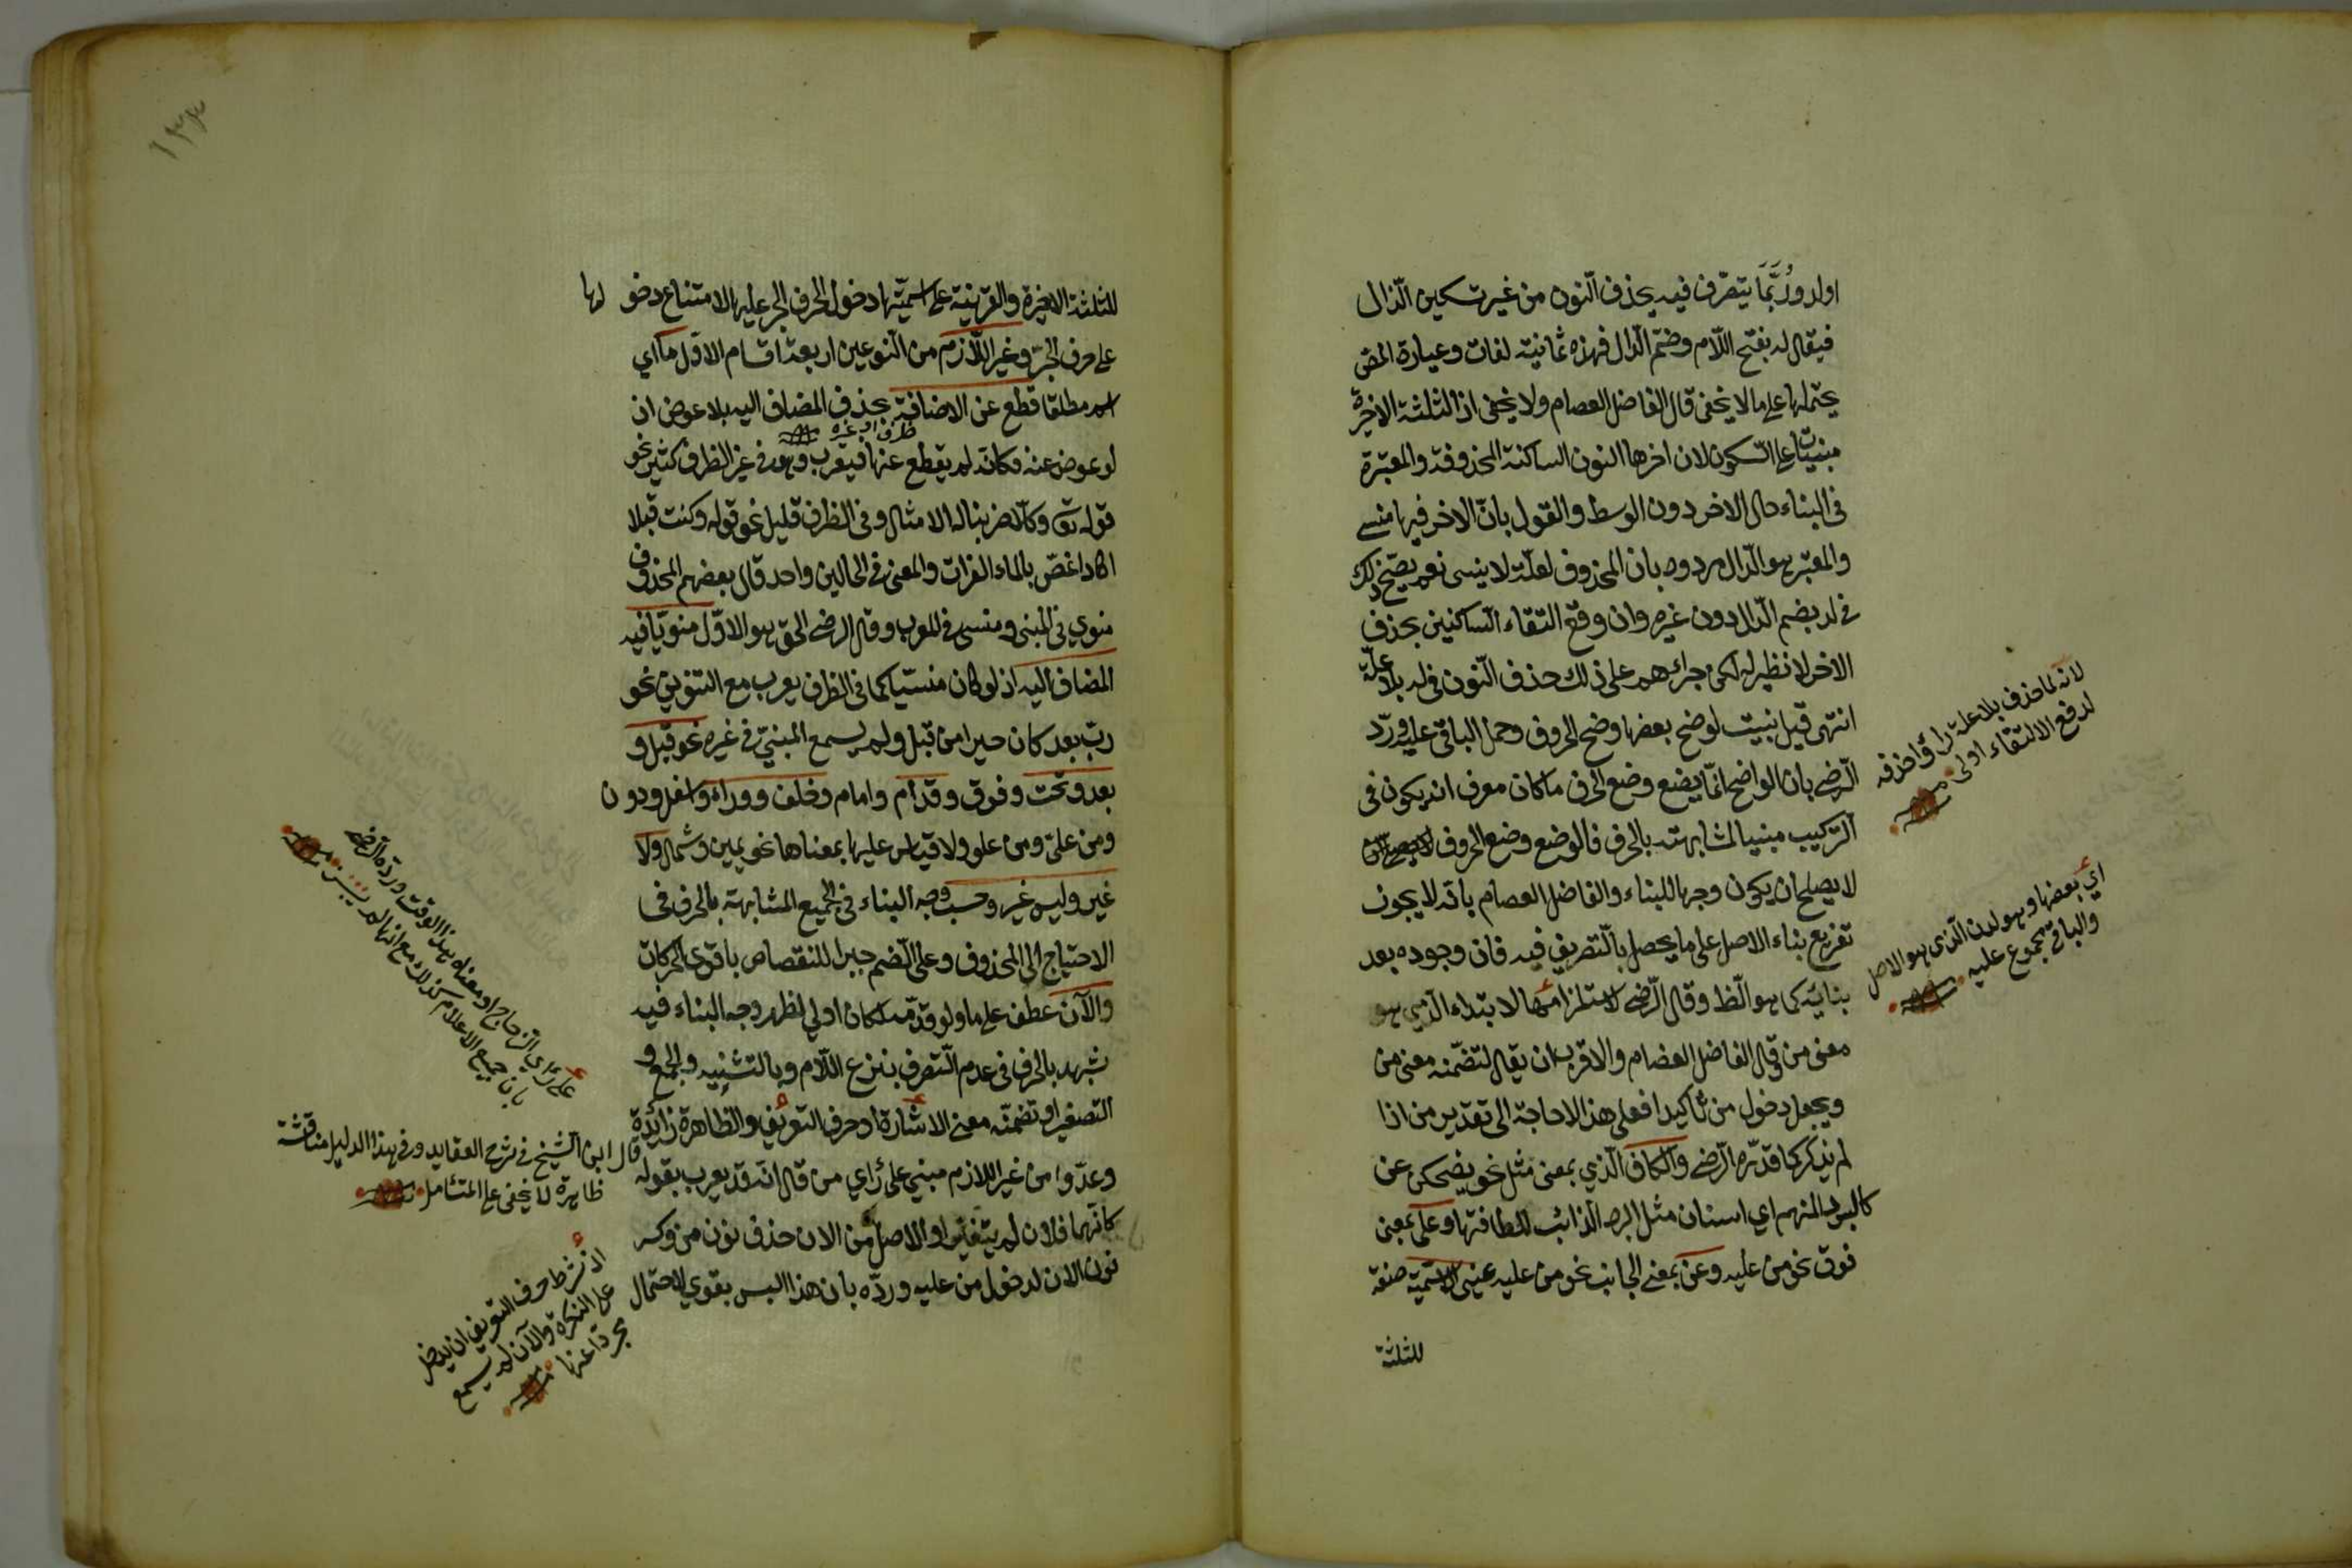 اولد ورُبَّمَا يتصّرف فيه بحذف النّون من غير تسكين الدّال
فيقال لد بفتح اللّام وضمّ الدّال فهذه ثمانية لغات وعبارة المص
يحتملها على ما لا يخفى قال الفاضل العصام ولا يخفى ان الثلثة الاخيرة
مبنيات على السّكون لان اخرها النون الساكنة المحذوفة والمعتبرة
فى البناء حال الاخر دون الوسط والقول بانّ الاخر فيها منسى
والمعتبر هو الدّال مردود بان المحذوف لعلّة لا ينسى نعم يصحّ ذلك
فى لد بضم الدّال دون غيره وان وقع التقاء السّاكنين بحذف
الاخر لا نظير له لكن جرائهم على ذلك حذف النّون فى لد بلا علّة
انتهى قيل بنيت لوضح بعضها وضح الحروف وحمل الباقى عليه وردّ
الرّضى بان الواضح انّما يضع وضع الحرف ما كان معرف انه يكون فى
التركيب مبنيا لمشابهته بالحرف فالوضع وضع الحروف
لا يصلح ان يكون وجها للبناء والفاضل العصام بانّه لا يجوز
تفريع بناء الاصل على ما يحصل بالتّصريف فيه فان وجوده بعد
بنائه كما هو الظّ وقال الرّضى لاستلزامها لابتداء الّذي هو
معنى من وقال الفاضل العضام والاقرب ان يقال لتضمّنه معنى من
ويجعل دخول من تأكيدا فعلى هذا لا حاجة الى تقدير من اذا
لم يذكر كما قدّره الرّضى والكاف الّذي بمعنى مثل نحو يضحكن عن
كالبرد المنهم اي اسنان مثل البرد الذائب للطافتها وعلى بمعنى
فوق نحو من عليه وعن بمعنى الجانب نحو من عليه عينى الاسميّة صفة
للثلثة
لانّه لما حذف بلا علة رأوا حذفه
لدفع الالتقاء اولى
اي بعضها وهو لدن الّذى هو الاصل
والباقى مجموع عليه
للثلثة الاخيرة والقرينة على اسميّتها دخول الحرف الجر عليها لامتناع دخولها
على حرف الجرّ وغير اللّازم من النّوعين اربعة اقسام الاوّل ما اي
اسم مطلقا قطع عن الاضافة بحذف المضاف اليه بلا عوض ان
ظرف او غيره
لو عوض عنه فكانّه لم يقطع عنها فيعرب وهو فى غير الظرف كثير نحو
قوله تع وكلّا ضربنا له الامثال وفى الظرف قليل نحو قوله وكنت قبلا
اكاد اغصّ بالماء الفرات والمعنى فى الحالين واحد قال بعضهم المحذوف
منوي فى المبنى ومنسى فى المعرب وقال الرضى الحق هو الاوّل منويّا فيه
المضاف اليه اذ لو كان منسيّا كما فى الظرف يعرب مع التنوين نحو
ربّ بعد كان حيرا من قبل ولم يسمع المبنيّ فى غيره نحو قبل و
بعد وتحت وفوق وقدّام وامام وخلف ووراء واسفل ودون
ومن علىّ ومن علو ولا قياس عليها بمعناها نحو يمين وشمال ولا
غير وليس غير وحسب وجه البناء فى الجميع المشابهة بالحرف فى
الاحتياج الى المحذوف وعلى الضّم جبرا للنقصاص باقوى الحركات
والآن عطف على ما ولو قدّمه لكان اولي لظهر وجه البناء فيه
شبهه بالحرف فى عدم التّصرف بنزع اللّام وبالتّثنيه والجمع و
التصغير او تضمنّه معنى الاشارة او حرف التّعريف والظّاهرة زائدة
وعدّوا من غير اللازم مبني على رأي من قال انّه قد يعرب بقوله
كانّهما فلان لم يتغيّرا والاصل من الان حذف نون من وكسر
نون الان لدخول من عليه وردّه بان هذا ليس بقوي لاحتمال
على رأي الزجاج او معناه هذا الوقت وردّه الرضى
بان جميع الاعلام كذلك مع انها لم يبن
قال ابن الشّيخ فى شرح العقايد وفى هذا الدليل مناقشة
ظاهرة لا يخفى على المتأمل
اذ شرط حرف التعريف ان يدخل
على النكرة والآن لم يسمع
مجرّدا عنها